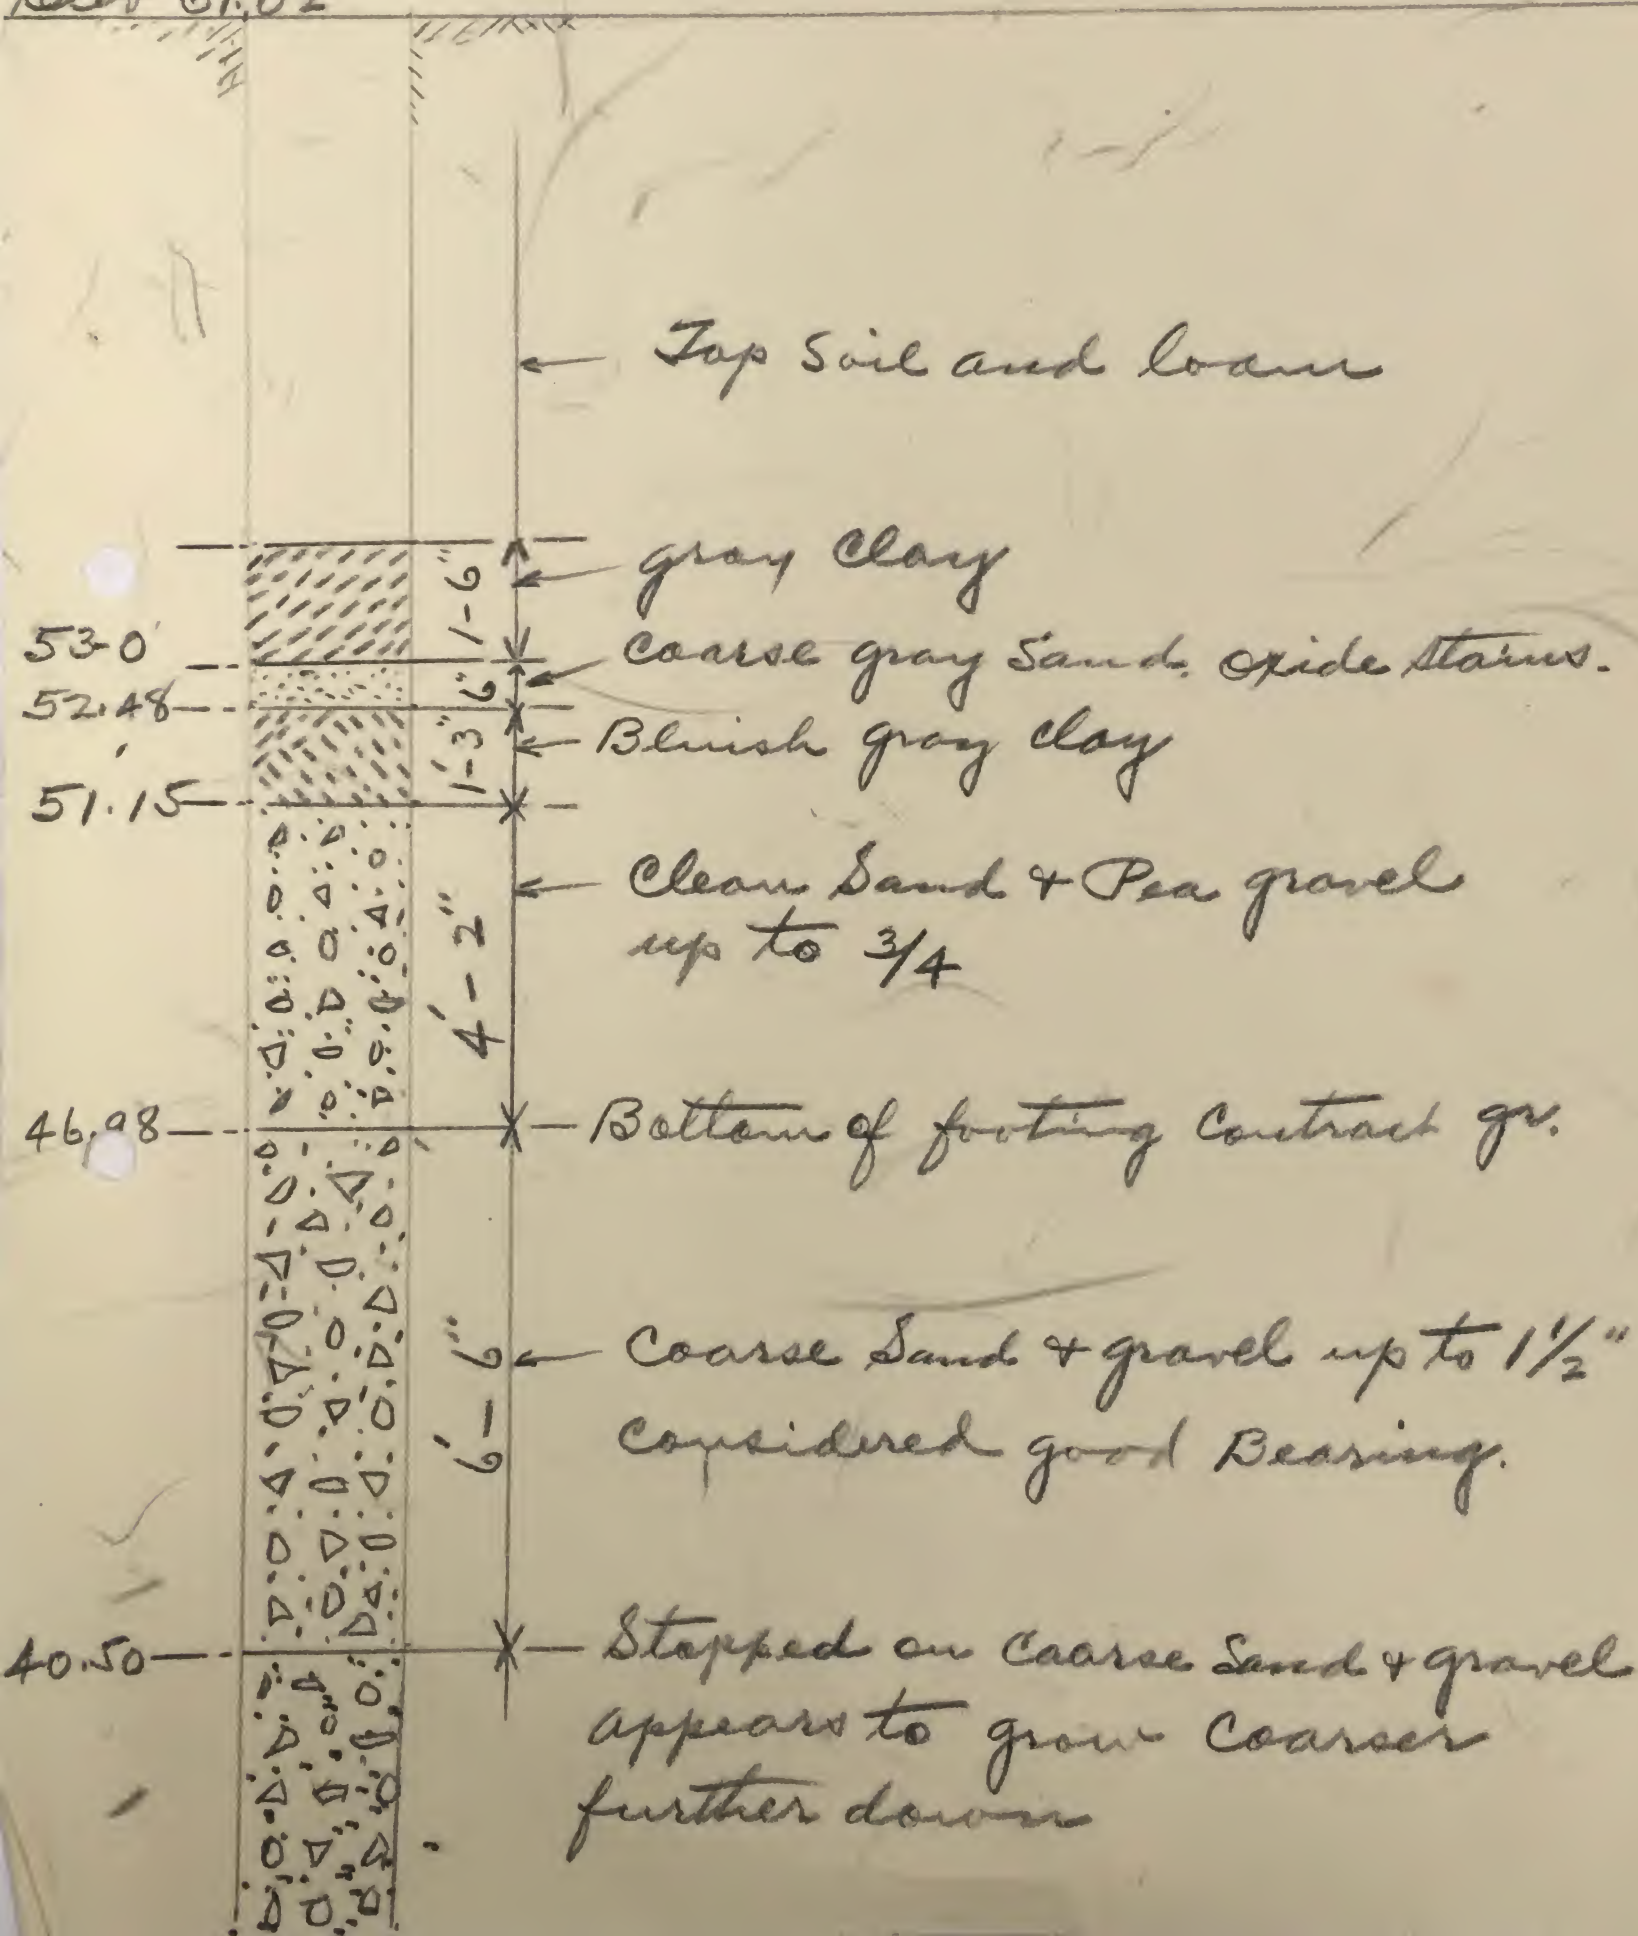 Top Soil and loam
1'-6"
gray Clay
53-0'
6"
Coarse gray Sand. Oxide Stains.
52.48
1'-3"
Bluish gray clay
51.15
4'-2"
Clean Sand & Pea gravel
up to 3/4
46.98
Bottom of footing Contract gr.
6'-6"
Coarse Sand & gravel up to 1 1/2"
Considered good Bearing.
40.50
Stopped on Coarse Sand & gravel
appears to grow Coarser
further down